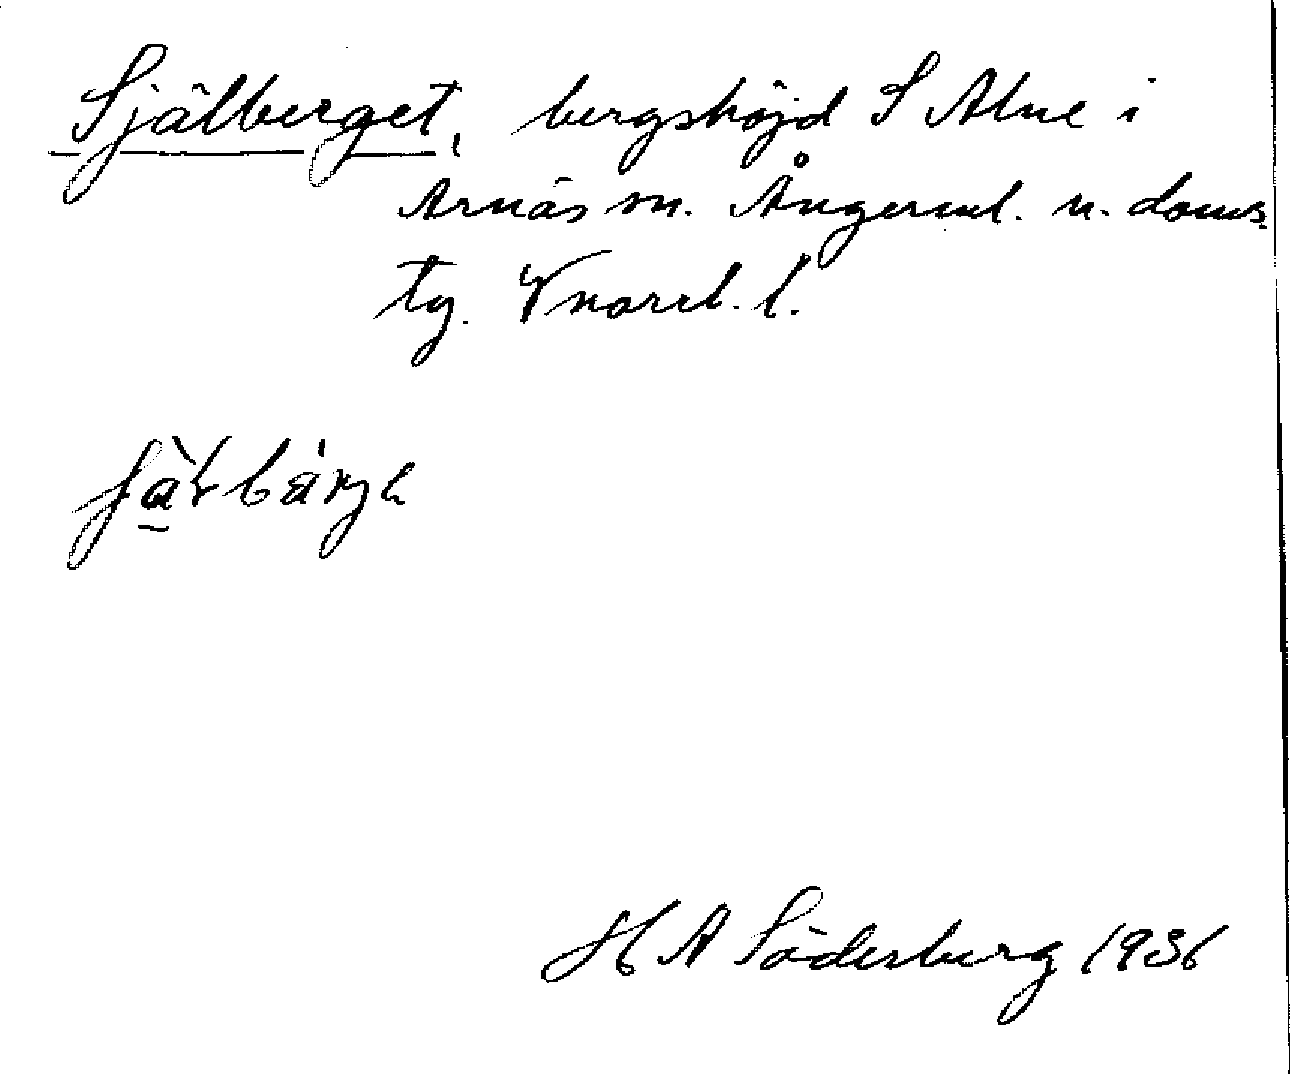 Själberget, bergshöjd S Alne i
Arnäs sn. Ångerml. n. doms
tg. Vnorrl. l.
H A Söderberg 1936